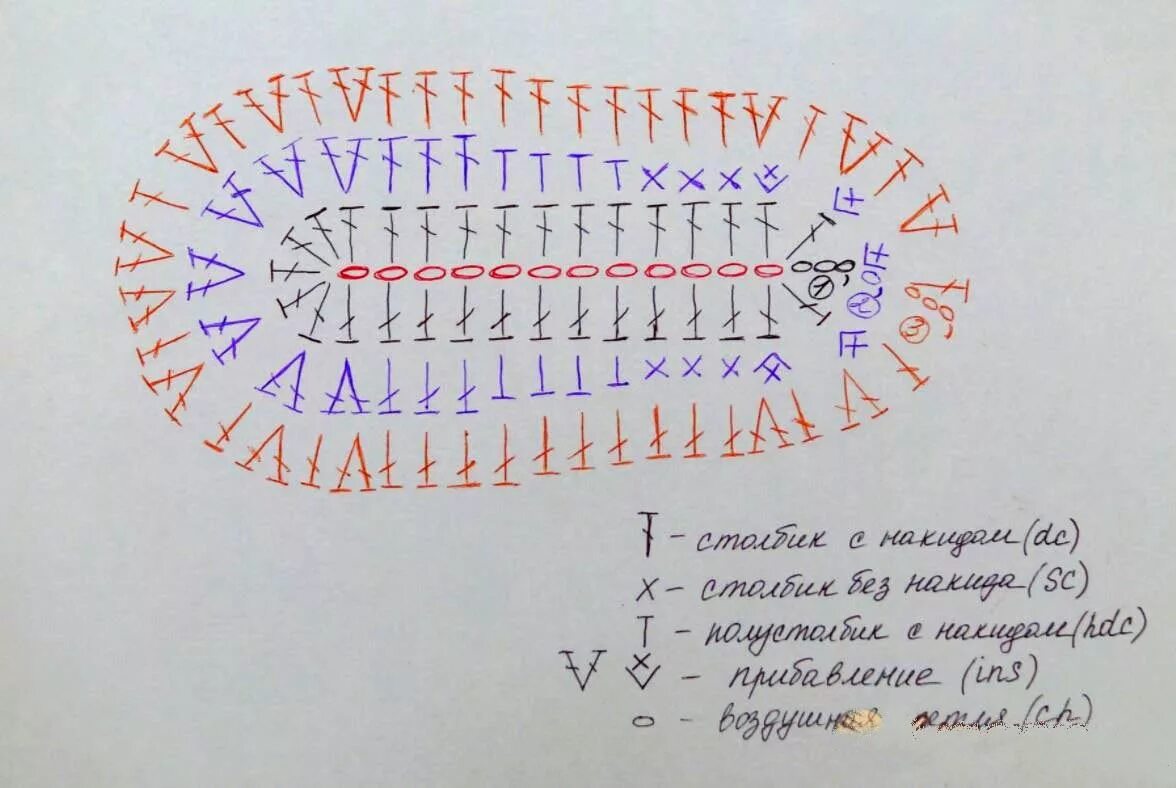 1
2
3
- столбик с накидом (dc)
х - столбик без накида (Sc)
- полустолбик с накидом (hdc)
- прибавление (ins)
- воздушная (ch)